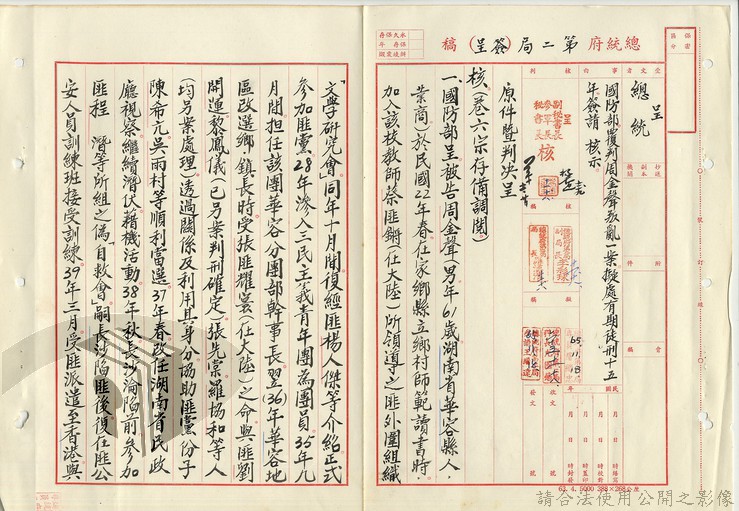 總統府第二局(簽呈)稿
呈
總統
國防部覆判周金聲叛亂一案擬處有期徒刑十五
年簽請 核示
副秘書長
參軍長
秘書長
核
原件暨判決呈
核。卷六宗存備調閱。
一、國防部呈被告周金聲(男年61歲湖南省華容縣人,
業商)於民國22年春在家鄉縣立鄉村師範讀書時,
加入該校教師蔡匪鏘(在大陸)所領導之匪外圍組織
「文學研究會」同年十月間復經匪楊人傑等介紹正式
參加匪黨28年滲入三民主義青年團為團員35年九
月間担任該團華容分團部幹事長翌(36)年華容地
區改選鄉、鎮長時受張匪耀雲(在大陸)之命與匪劉
開運黎鳳儀(已另案判刑確定)張先棠羅揚和等人
(均另案處理)透過關係及利用其身分協助匪黨份子
陳希亢吳雨村等順利當選37年春改任湖南省民政
廳視察繼續潛伏藉機活動38年秋長沙淪陷前參加
匪程 潛等所組之偽「自救會」嗣長沙陷匪後復在匪公
安人員訓練班接受訓練39年三月受匪派遣至香港與
65.11.18
63.4.5000 388×268公厘
請合法使用公開之影像